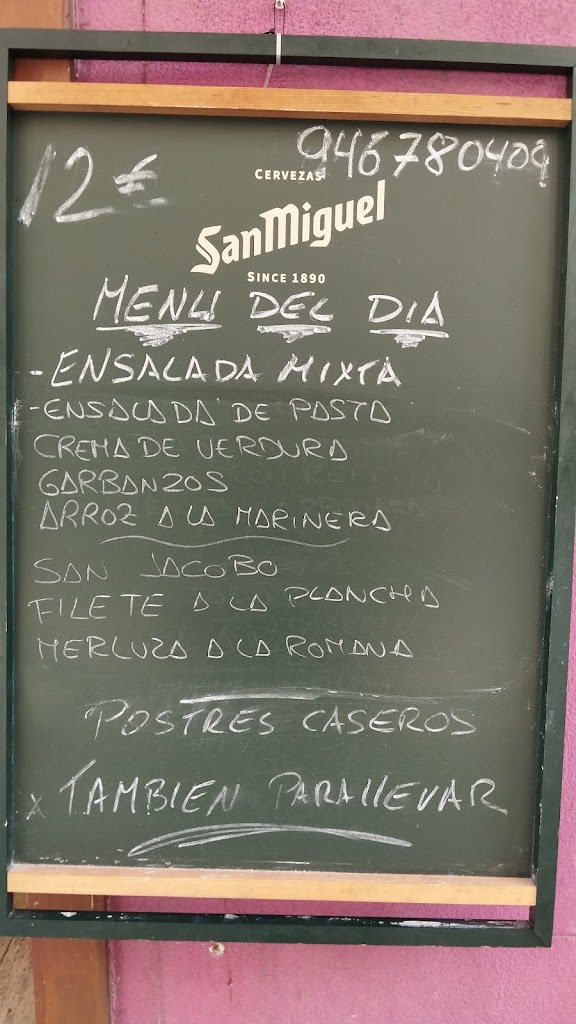 12 €
946780409
CERVEZAS
SanMiguel
SINCE 1890
MENU DEL DIA
- ENSALADA MIXTA
- ENSALADA DE PASTA
CREMA DE VERDURA
GARBANZOS
ARROZ A LA MARINERA
SAN JACOBO
FILETE A LA PLANCHA
MERLUZA A LA ROMANA
POSTRES CASEROS
x TAMBIEN PARA llEVAR